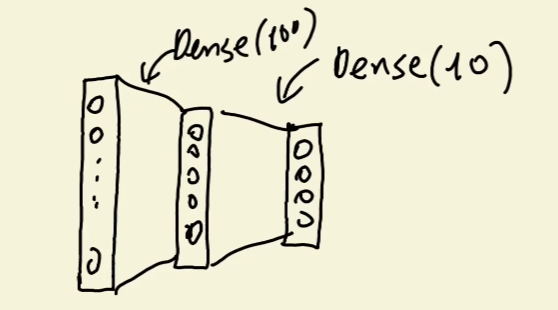 Dense(100)
Dense(10)